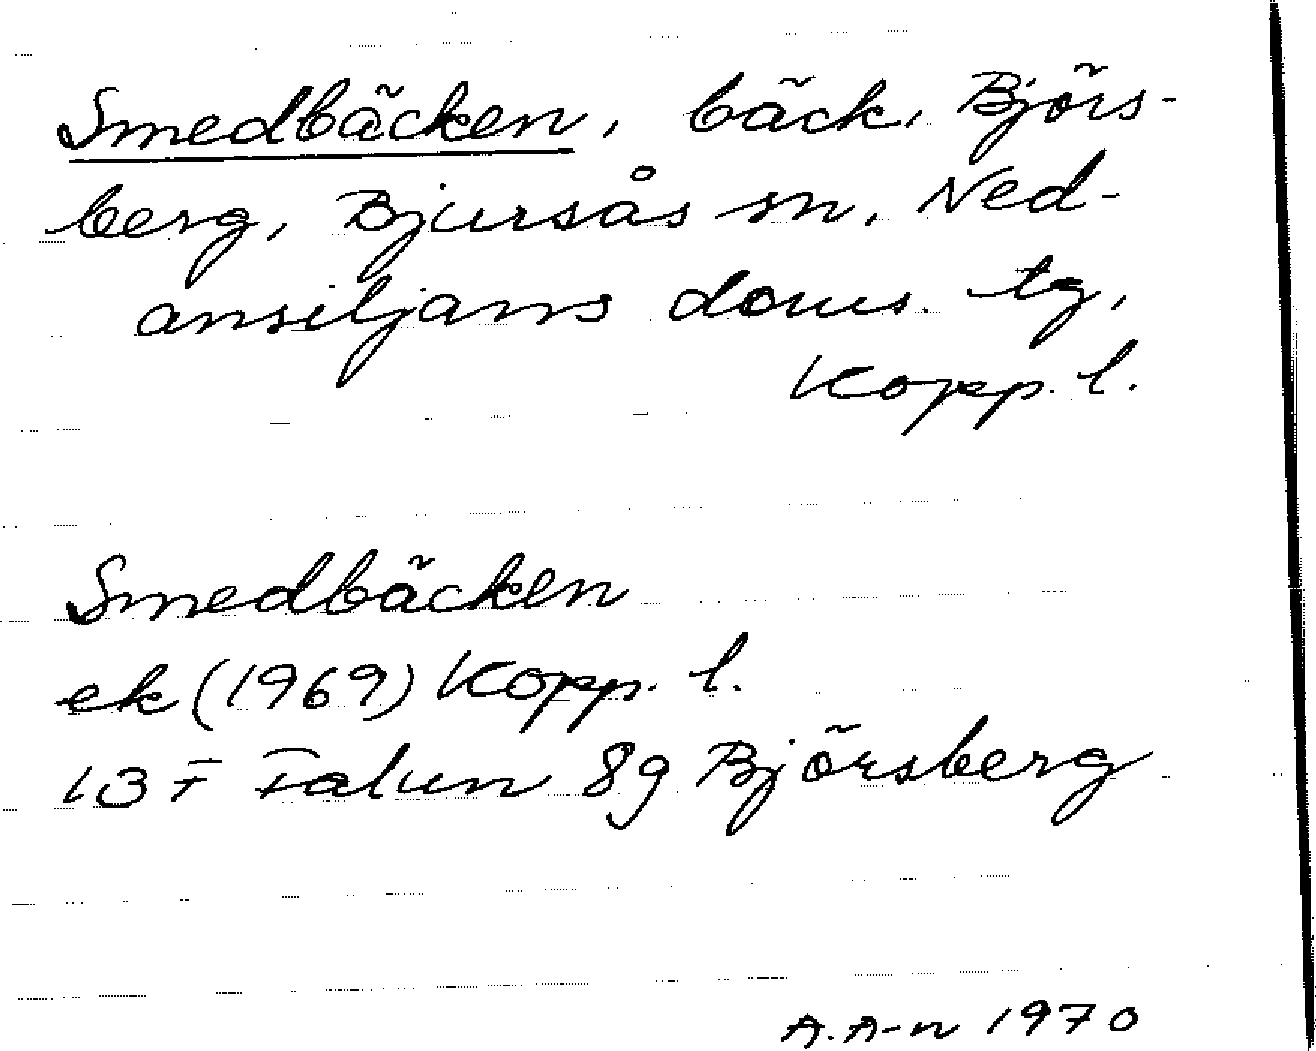 Smedbäcken, bäck, Björs-
berg, Bjursås sn, Ned-
ansiljans doms. tg,
Kopp. l.
Smedbäcken
ek (1969) Kopp. l.
13 F Falun 8 g Björsberg
A.A-n 1970